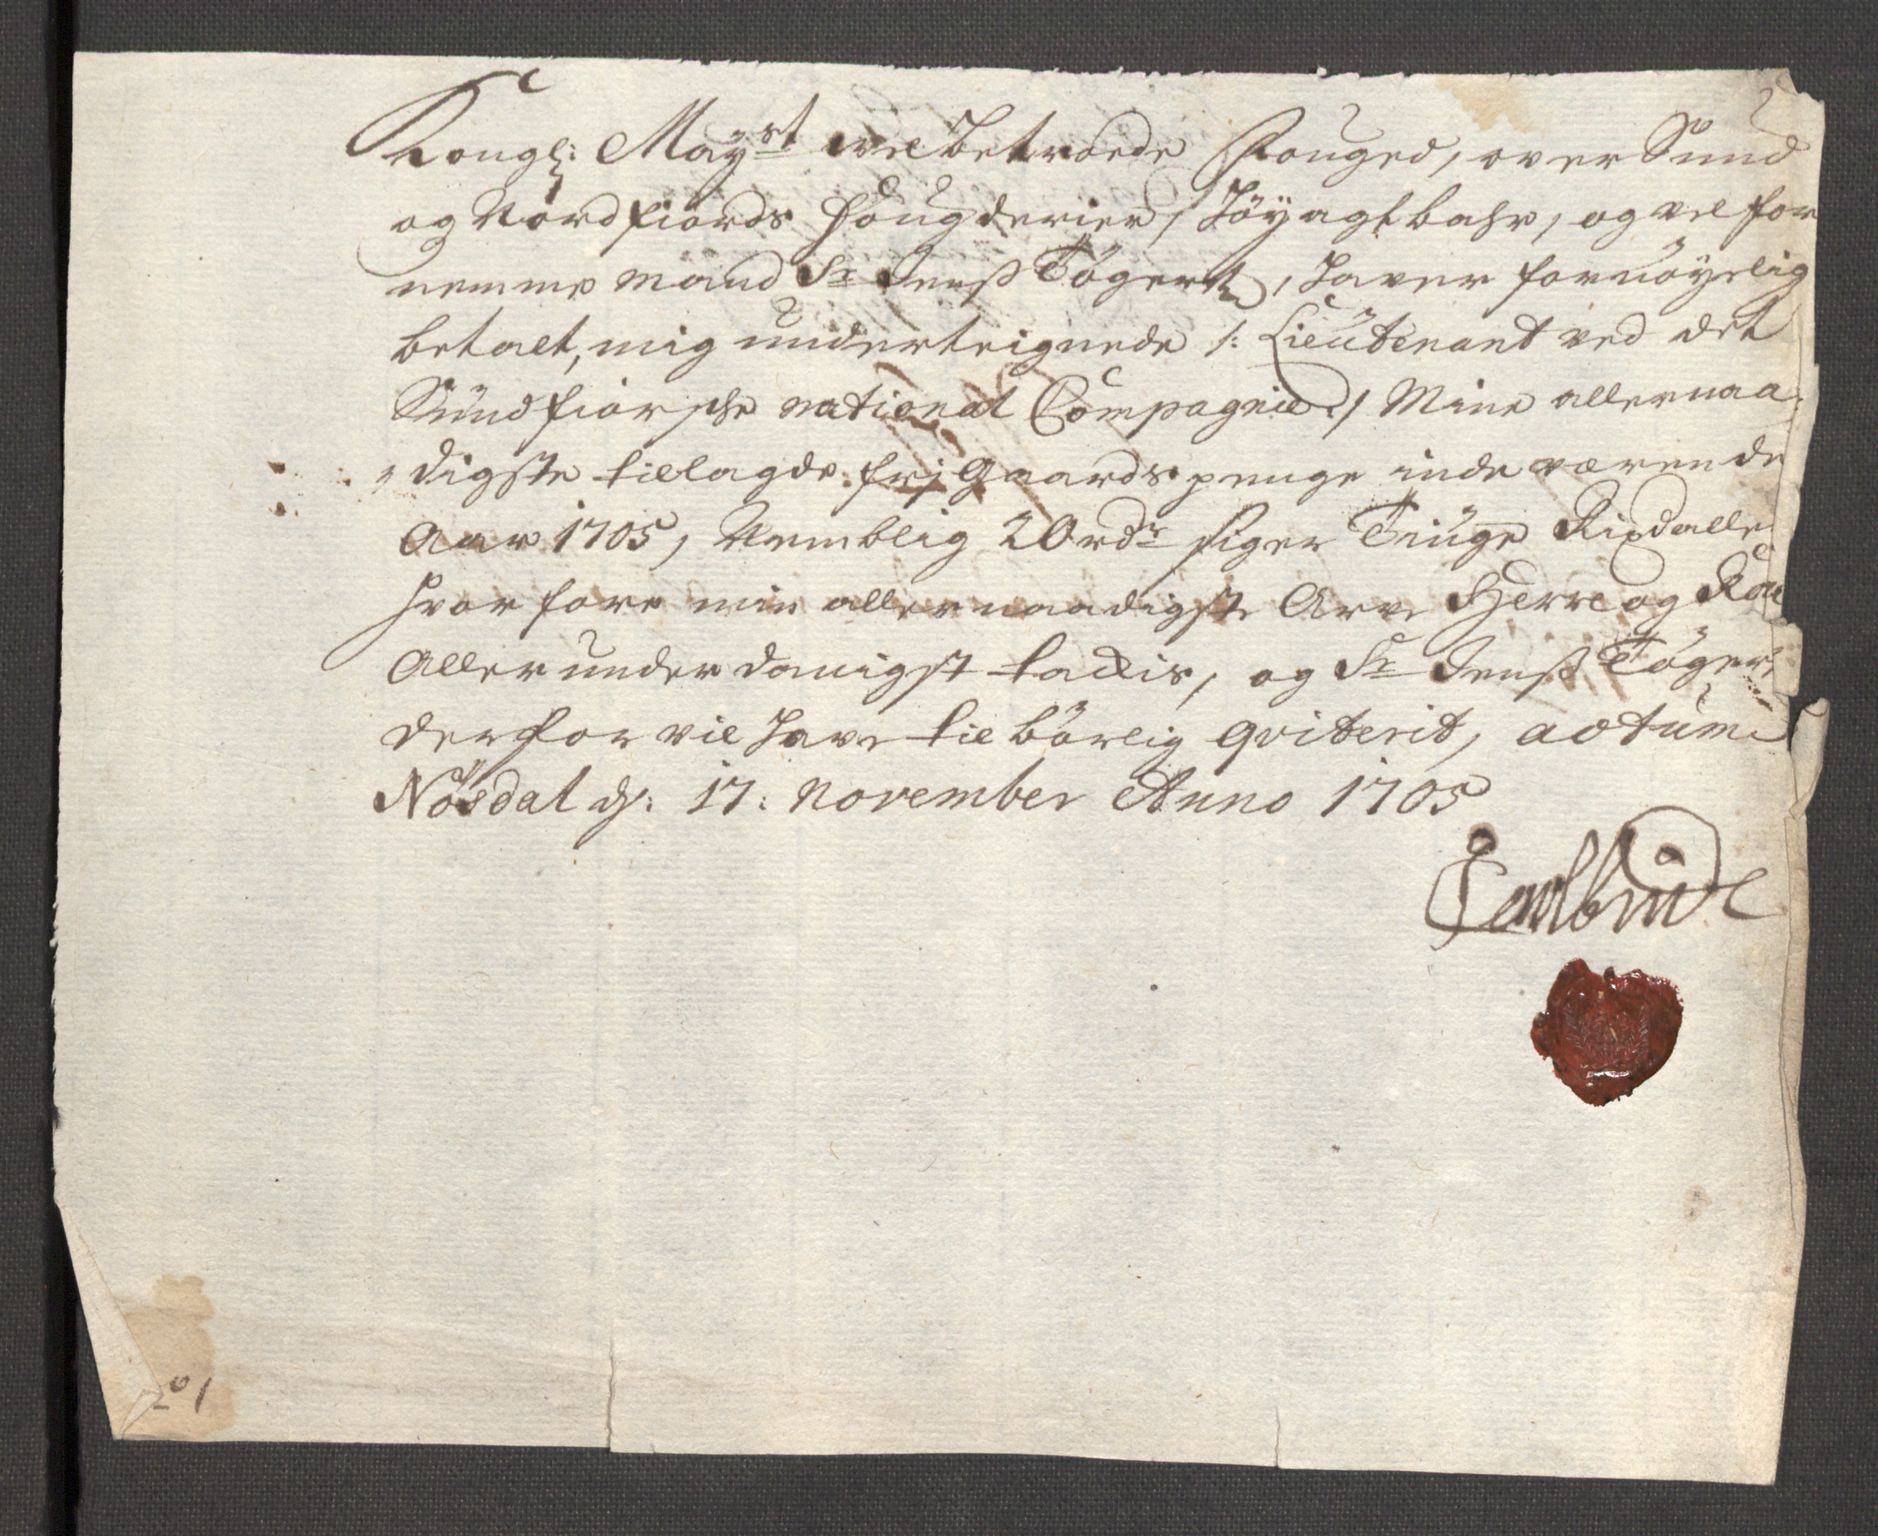 Kongl: Mayst welbetroede Fouged, over Sund
og Nordfiords Fougderier, Höyagtbahr, og vel for
nemme mand Sr Jenß Tögers, haver fornöyelig
betalt, mig underteignede /: Lieutenant ved det
Sündfiorske national Compagnie :/ Mine allernaa
digste tillagde frj Gaards penge inde værende
Aar 1705, Nemblig 20 rdr siger Tiüge Rixdaller
hvorfore min allernaadigste Arve Herre og
Allerunderdanigst tackis, og Sr Jenß Töger
derfor vil have tilbörlig qviterit, actum
Nösdal d: 17: November Anno 1705
No 1